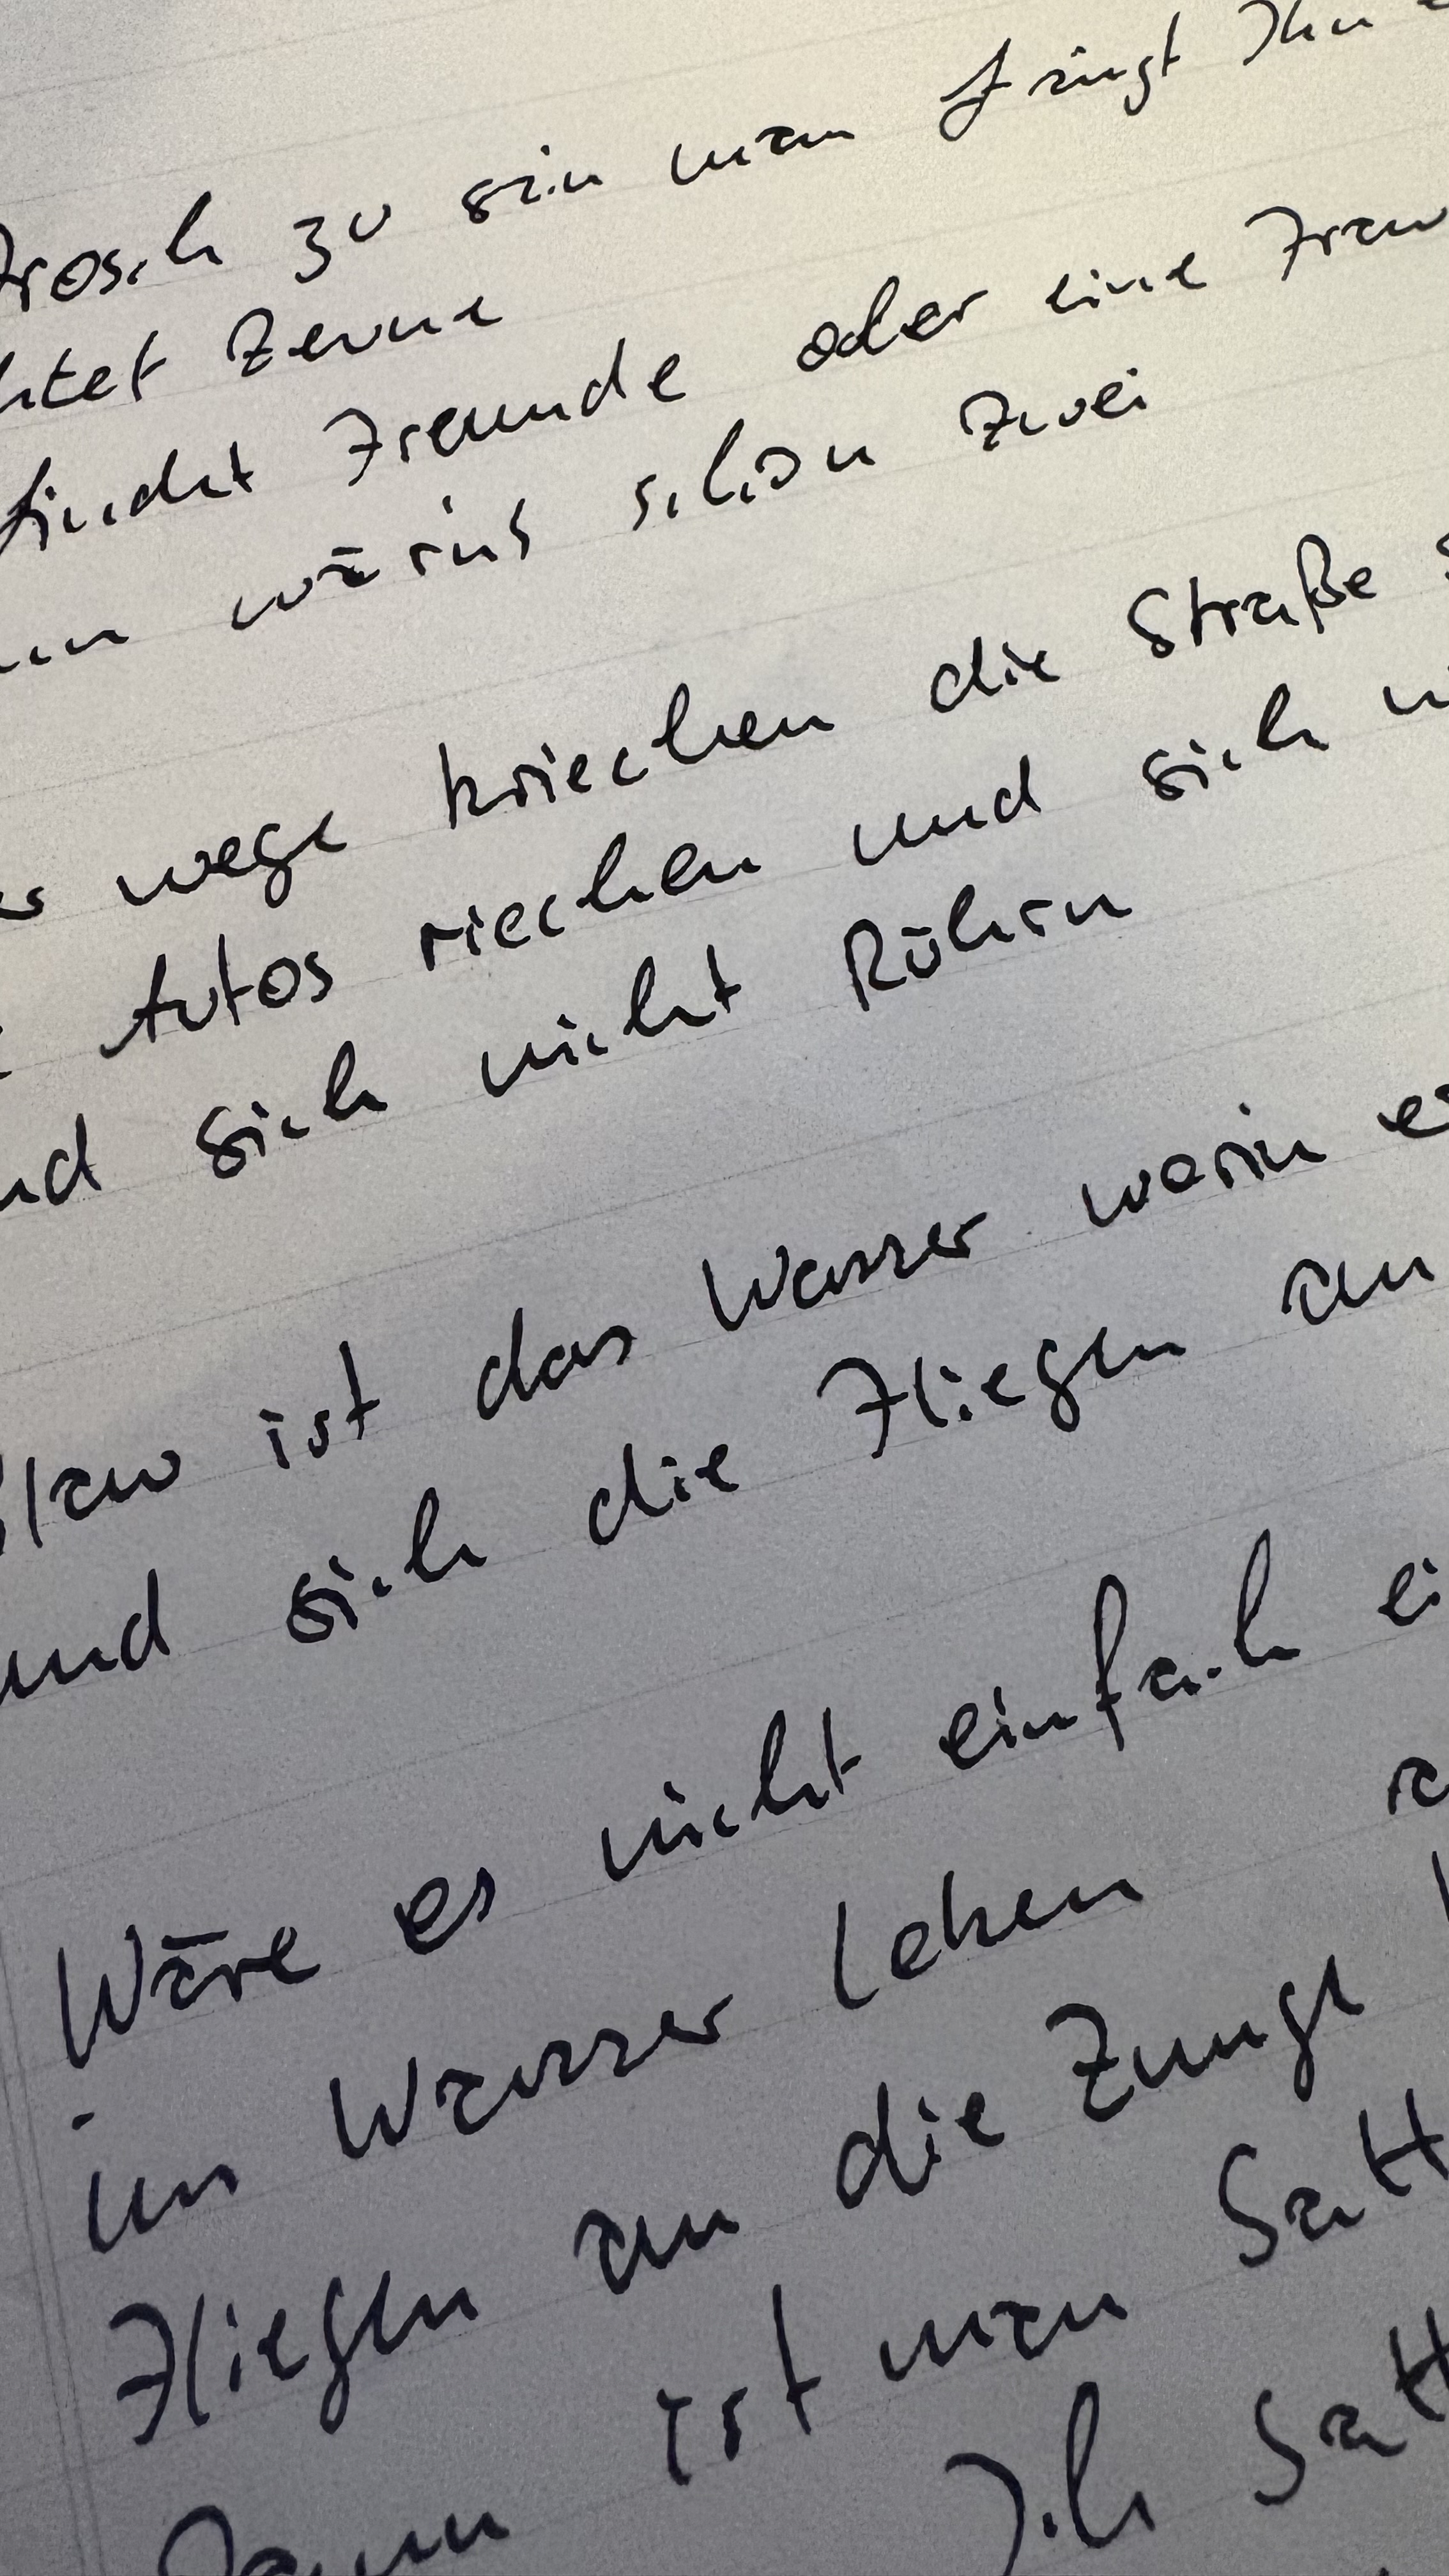 Frosch zu sein man fängt Ihn
htet Zeune
findet Freunde oder eine Frau
wärins schon Zwei
wege kriechen die Straße
Autos riechen und sich
nd sich nicht Rührn
Blau ist das Wasser worin es
und sich die Fliegen an
Wäre es nicht einfach ei
im Wasser Leben
Fliegen an die Zunge
Dann ist man Satt
Ich Satt